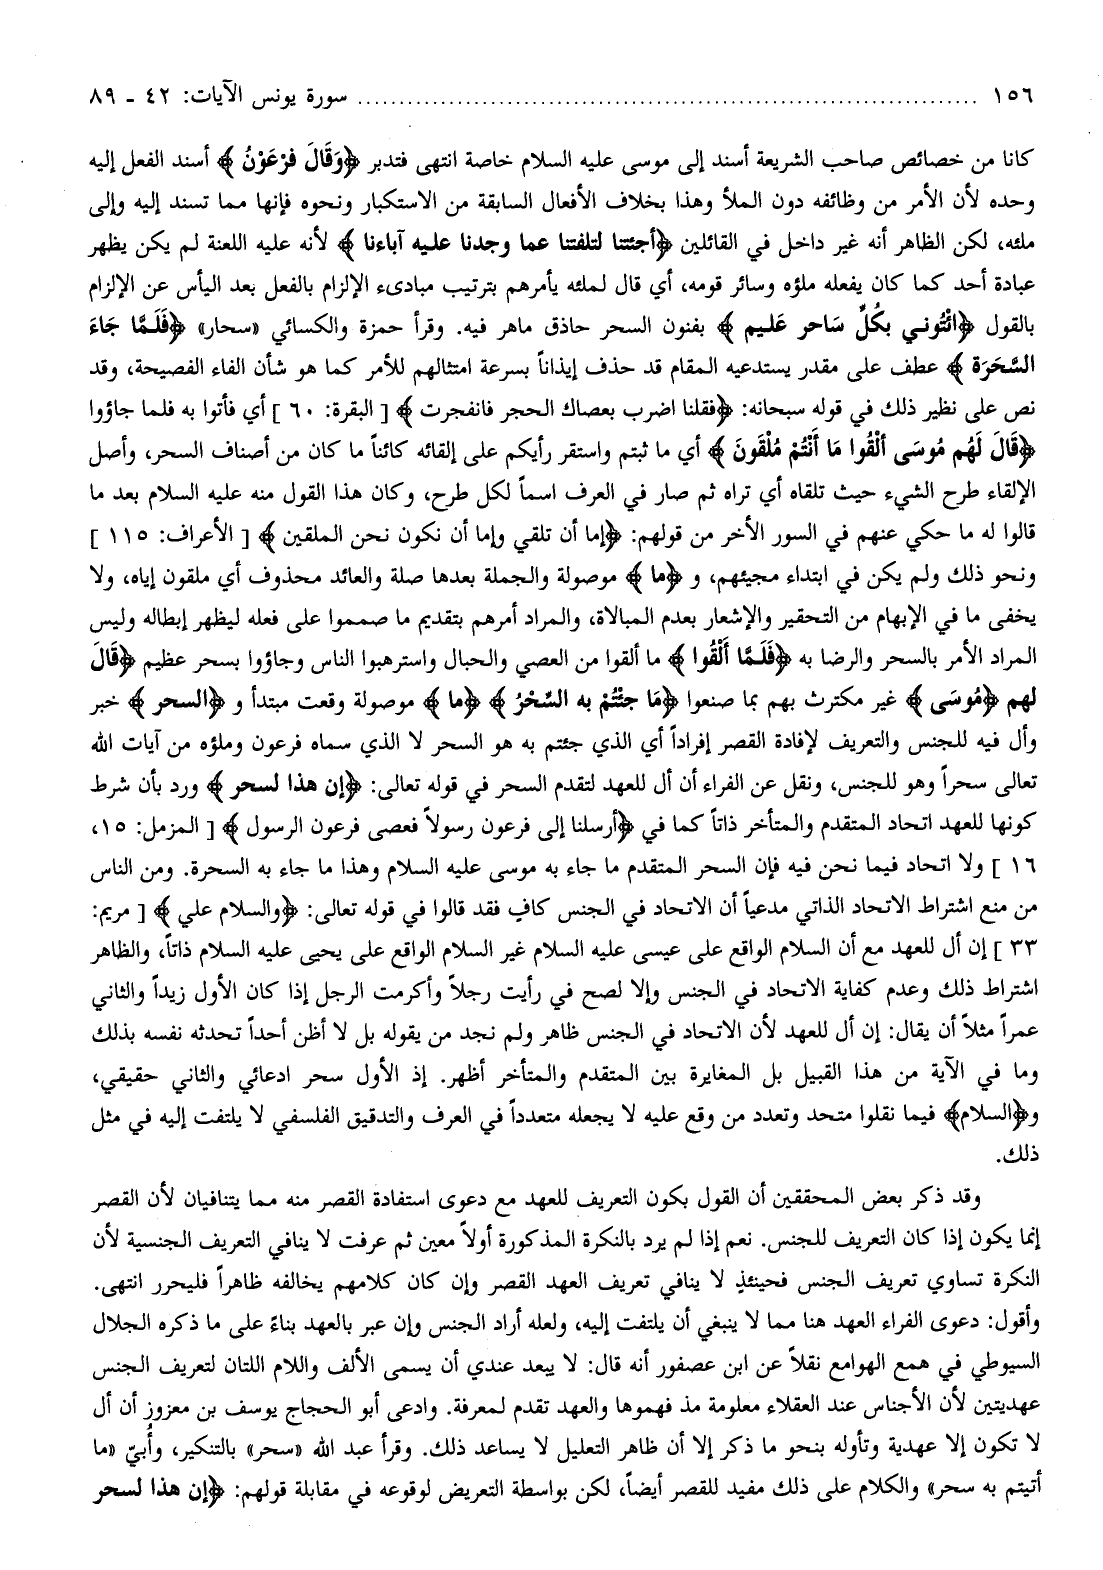 ١٥٦ ........................................................................ سورة يونس الآيات: ٤٢ ـ ٨٩
كانا من خصائص صاحب الشريعة أسند إلى موسى عليه السلام خاصة انتهى فتدبر ﴿وَقَالَ فِرْعَوْنُ﴾ أسند الفعل إليه
وحده لأن الأمر من وظائفه دون الملأ وهذا بخلاف الأفعال السابقة من الاستكبار ونحوه فإنها مما تسند إليه وإلى
ملئه، لكن الظاهر أنه غير داخل في القائلين ﴿أجئتنا لتلفتنا عما وجدنا عليه آباءنا﴾ لأنه عليه اللعنة لم يكن يظهر
عبادة أحد كما كان يفعله ملؤه وسائر قومه، أي قال لملئه يأمرهم بترتيب مبادىء الإلزام بالفعل بعد اليأس عن الإلزام
بالقول ﴿ائْتُوني بِكُلِّ سَاحرٍ عَليمٍ﴾ بفنون السحر حاذق ماهر فيه. وقرأ حمزة والكسائي «سحار» ﴿فَلَمَّا جَاءَ
السَّحَرَة﴾ عطف على مقدر يستدعيه المقام قد حذف إيذاناً بسرعة امتثالهم للأمر كما هو شأن الفاء الفصيحة، وقد
نص على نظير ذلك في قوله سبحانه: ﴿فقلنا اضرب بعصاك الحجر فانفجرت﴾ [ البقرة: ٦٠ ] أي فأتوا به فلما جاؤوا
﴿قَالَ لَهُم مُوسَى ألْقُوا مَا أَنْتُمْ مُلْقَونَ﴾ أي ما ثبتم واستقر رأيكم على إلقائه كائناً ما كان من أصناف السحر، وأصل
الإلقاء طرح الشيء حيث تلقاه أي تراه ثم صار في العرف اسماً لكل طرح، وكان هذا القول منه عليه السلام بعد ما
قالوا له ما حكي عنهم في السور الأخر من قولهم: ﴿إما أن تلقي وإما أن نكون نحن الملقين﴾ [ الأعراف: ١١٥ ]
ونحو ذلك ولم يكن في ابتداء مجيئهم، و ﴿ما﴾ موصولة والجملة بعدها صلة والعائد محذوف أي ملقون إياه، ولا
يخفى ما في الإبهام من التحقير والإشعار بعدم المبالاة، والمراد أمرهم بتقديم ما صمموا على فعله ليظهر إبطاله وليس
المراد الأمر بالسحر والرضا به ﴿فَلَمَّا أَلْقُوا﴾ ما ألقوا من العصي والحبال واسترهبوا الناس وجاؤوا بسحر عظيم ﴿قَالَ
لهم ﴿مُوسَى﴾ غير مكترث بهم بما صنعوا ﴿مَا جئْتُمْ به السِّحْرُ﴾ ﴿ما﴾ موصولة وقعت مبتدأ و ﴿السحر﴾ خبر
وأل فيه للجنس والتعريف لإفادة القصر إفراداً أي الذي جئتم به هو السحر لا الذي سماه فرعون وملؤه من آيات الله
تعالى سحراً وهو للجنس، ونقل عن الفراء أن أل للعهد لتقدم السحر في قوله تعالى: ﴿إن هذا لسحر﴾ ورد بأن شرط
كونها للعهد اتحاد المتقدم والمتأخر ذاتاً كما في ﴿أرسلنا إلى فرعون رسولاً فعصى فرعون الرسول﴾ [ المزمل: ١٥،
١٦ ] ولا اتحاد فيما نحن فيه فإن السحر المتقدم ما جاء به موسى عليه السلام وهذا ما جاء به السحرة. ومن الناس
من منع اشتراط الاتحاد الذاتي مدعياً أن الاتحاد في الجنس كافٍ فقد قالوا في قوله تعالى: ﴿والسلام علي﴾ [ مريم:
٣٣ ] إن أل للعهد مع أن السلام الواقع على عيسى عليه السلام غير السلام الواقع على يحيى عليه السلام ذاتاً، والظاهر
اشتراط ذلك وعدم كفاية الاتحاد في الجنس وإلا لصح في رأيت رجلاً وأكرمت الرجل إذا كان الأول زيداً والثاني
عمراً مثلاً أن يقال: إن أل للعهد لأن الاتحاد في الجنس ظاهر ولم نجد من يقوله بل لا أظن أحداً تحدثه نفسه بذلك
وما في الآية من هذا القبيل بل المغايرة بين المتقدم والمتأخر أظهر. إذ الأول سحر ادعائي والثاني حقيقي،
و﴿السلام﴾ فيما نقلوا متحد وتعدد من وقع عليه لا يجعله متعدداً في العرف والتدقيق الفلسفي لا يلتفت إليه في مثل
ذلك.
وقد ذكر بعض المحققين أن القول بكون التعريف للعهد مع دعوى استفادة القصر منه مما يتنافيان لأن القصر
إنما يكون إذا كان التعريف للجنس. نعم إذا لم يرد بالنكرة المذكورة أولاً معين ثم عرفت لا ينافي التعريف الجنسية لأن
النكرة تساوي تعريف الجنس فحينئذٍ لا ينافي تعريف العهد القصر وإن كان كلامهم يخالفه ظاهراً فليحرر انتهى.
وأقول: دعوى الفراء العهد هنا مما لا ينبغي أن يلتفت إليه، ولعله أراد الجنس وإن عبر بالعهد بناءً على ما ذكره الجلال
السيوطي في همع الهوامع نقلاً عن ابن عصفور أنه قال: لا يبعد عندي أن يسمى الألف واللام اللتان لتعريف الجنس
عهديتين لأن الأجناس عند العقلاء معلومة مذ فهموها والعهد تقدم لمعرفة. وادعى أبو الحجاج يوسف بن معزوز أن أل
لا تكون إلا عهدية وتأوله بنحو ما ذكر إلا أن ظاهر التعليل لا يساعد ذلك. وقرأ عبد الله «سحر» بالتنكير، وأُبيّ «ما
أتيتم به سحر» والكلام على ذلك مفيد للقصر أيضاً، لكن بواسطة التعريض لوقوعه في مقابلة قولهم: ﴿إن هذا لسحر